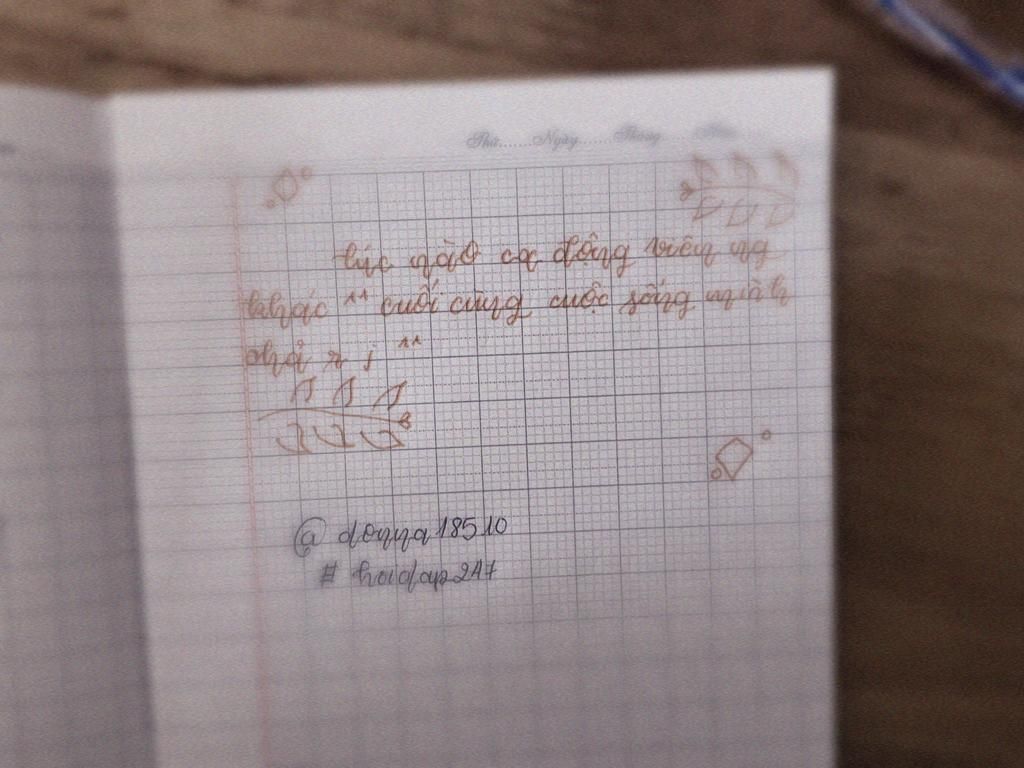 Thứ.......Ngày.......Tháng.......Năm
lúc nào cx động viên ng
khác " cuối cùng cuộc sống mình
như r j "
@ donna18510
# hoidap247